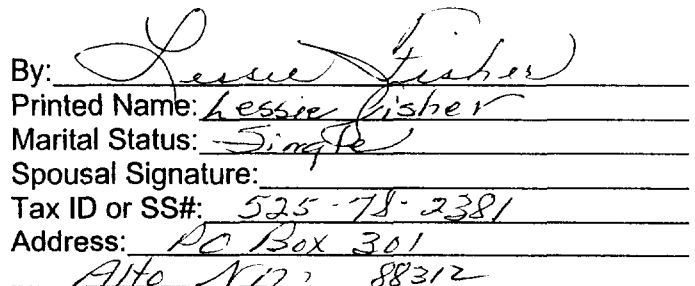 By: Lessie Fisher
Printed Name: Lessie Fisher
Marital Status: Single
Spousal Signature:
Tax ID or SS#: 525-78-2381
Address: PO Box 301
Alto NM 88312